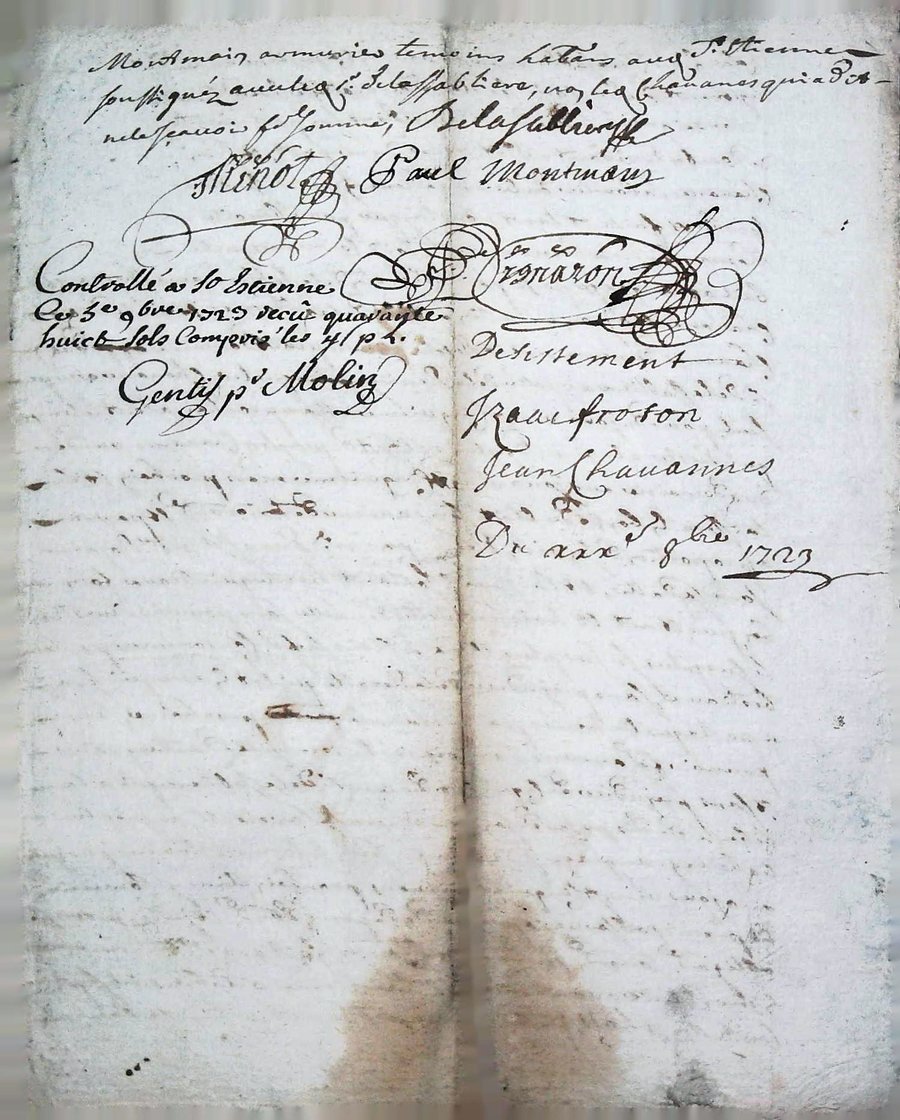 Montmain armurier temoins habtans aud St. Etienne
soussignéz avec led. sr. Delassabliere, non led Chavanes qui a déc
ne le scavoir
Delasabliere
Minot Paul Montmain
Controllé a St Estienne
Le 5e 9bre 1723 receu quarante
huict sols Compris les 4s p L.
Gentil pr Molin
Desistement
Izaac frozon
Jean Chauannes
Du xxxe 8bre 1723